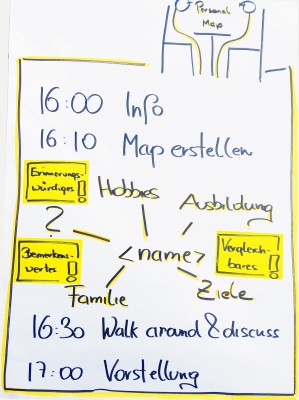 Personal
Map
16:00 Info
16:10 Map erstellen
Erinnerungs-
würdiges!
Hobbies
Ausbildung
?
<name>
Bemerkens-
wertes!
Vergleich-
bares!
Familie
Ziele
16:30 Walk around & discuss
17:00 Vorstellung